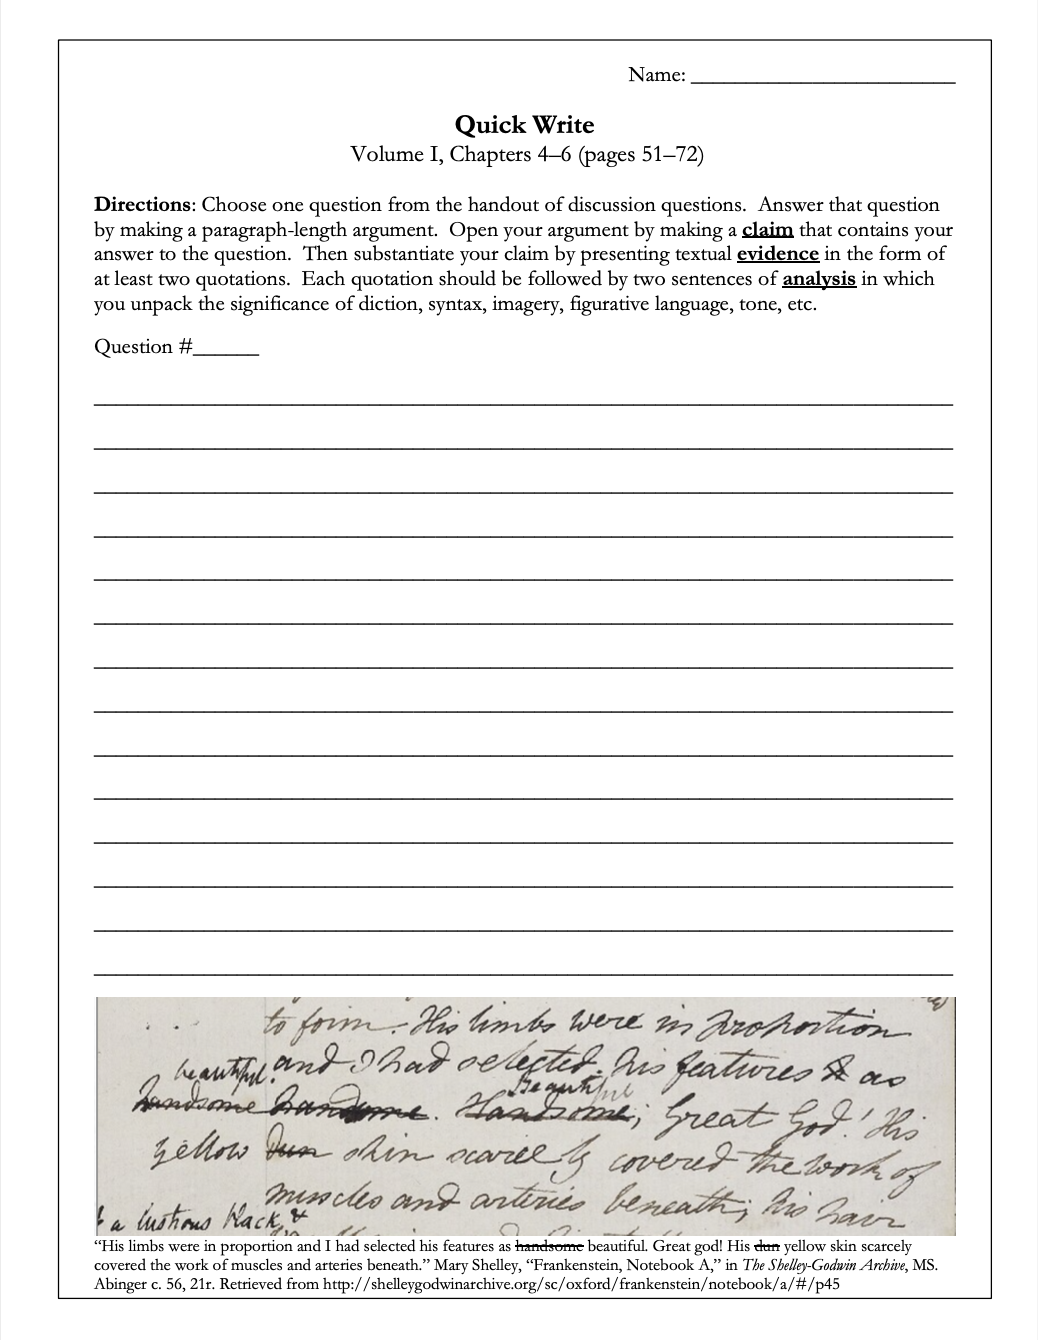 Name: ________________________
Quick Write
Volume I, Chapters 4–6 (pages 51–72)
Directions: Choose one question from the handout of discussion questions. Answer that question
by making a paragraph-length argument. Open your argument by making a claim that contains your
answer to the question. Then substantiate your claim by presenting textual evidence in the form of
at least two quotations. Each quotation should be followed by two sentences of analysis in which
you unpack the significance of diction, syntax, imagery, figurative language, tone, etc.
Question #______
to form. His limbs were in proportion
and I had selected his features & as
beautiful.
handsome handsome. Handsome; Great God! His
Beautiful
yellow dun skin scarcely covered the work of
muscles and arteries beneath; his hair
a lustrous black &
“His limbs were in proportion and I had selected his features as handsome beautiful. Great god! His dun yellow skin scarcely
covered the work of muscles and arteries beneath.” Mary Shelley, “Frankenstein, Notebook A,” in The Shelley-Godwin Archive, MS.
Abinger c. 56, 21r. Retrieved from http://shelleygodwinarchive.org/sc/oxford/frankenstein/notebook/a/#/p45